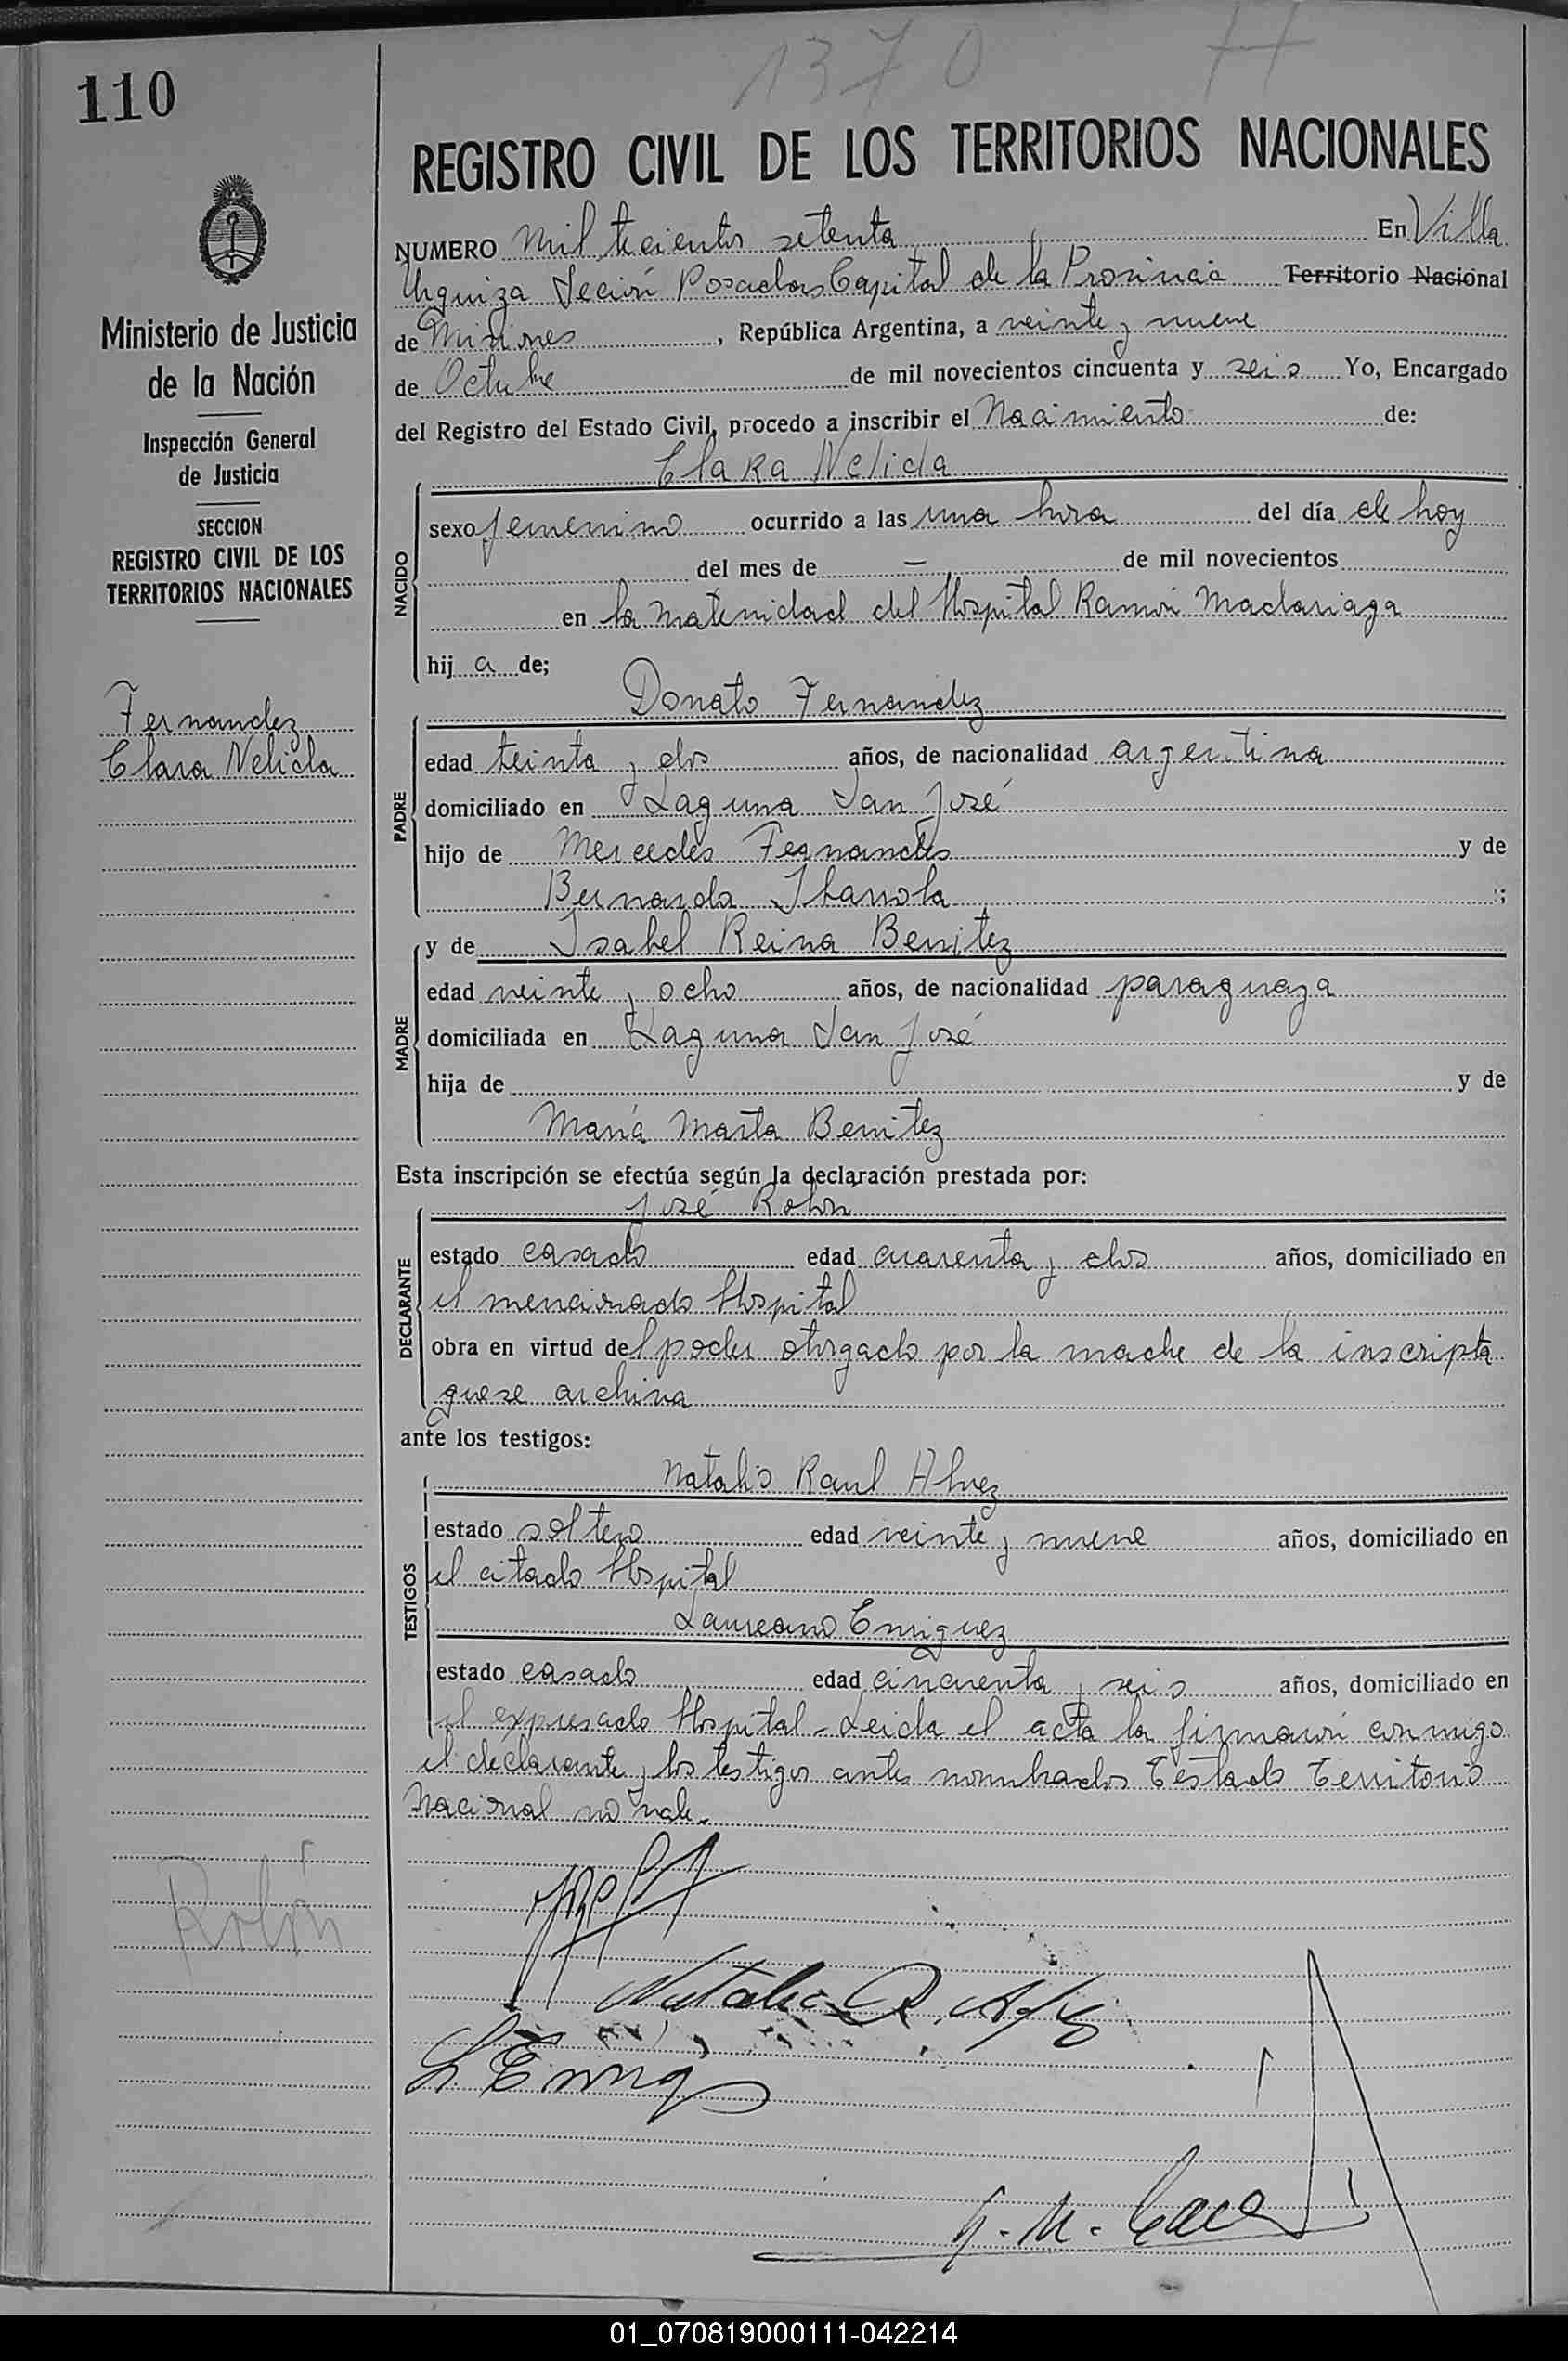 1370 H
110
REGISTRO CIVIL DE LOS TERRITORIOS NACIONALES
Ministerio de Justicia
de la Nación
Inspección General
de Justicia
SECCION
REGISTRO CIVIL DE LOS
TERRITORIOS NACIONALES
Fernandez
Clara Nelida
Rolón
NUMERO mil trecientos setenta En Villa
Urquiza Seción Posadas Capital de la Provincia Territorio Nacional
de Misiones, República Argentina, a veinte y nueve
de Octubre de mil novecientos cincuenta y seis Yo, Encargado
del Registro del Estado Civil, procedo a inscribir el Nacimiento de:
Clara Nelida
NACIDO
sexo femenino ocurrido a las una hora del día de hoy
del mes de — de mil novecientos
en la maternidad del Hospital Ramón Madariaga
hij a de;
Donato Fernandez
PADRE
edad treinta y dos años, de nacionalidad argentina
domiciliado en Laguna San José
hijo de Mercedes Fernandes y de
Bernarda ;
y de Isabel Reina Benitez
MADRE
edad veinte y ocho años, de nacionalidad paraguaya
domiciliada en Laguna San José
hija de y de
María Marta Benitez
Esta inscripción se efectúa según la declaración prestada por:
José Rolón
DECLARANTE
estado casado edad cuarenta y dos años, domiciliado en
el mencionado Hospital
obra en virtud del poder otorgado por la madre de la inscripta
que se archiva
ante los testigos:
Natalio Raul Alvez
TESTIGOS
estado soltero edad veinte y nueve años, domiciliado en
el citado Hospital
Laureano Enriquez
estado casado edad cincuenta y seis años, domiciliado en
el expresado Hospital - Leida el acta la firmaron conmigo
el declarante y los testigos antes nombrados Testado Territorio
Nacional no vale.
Natalio R. Alvez
L. Enriq
01_070819000111-042214